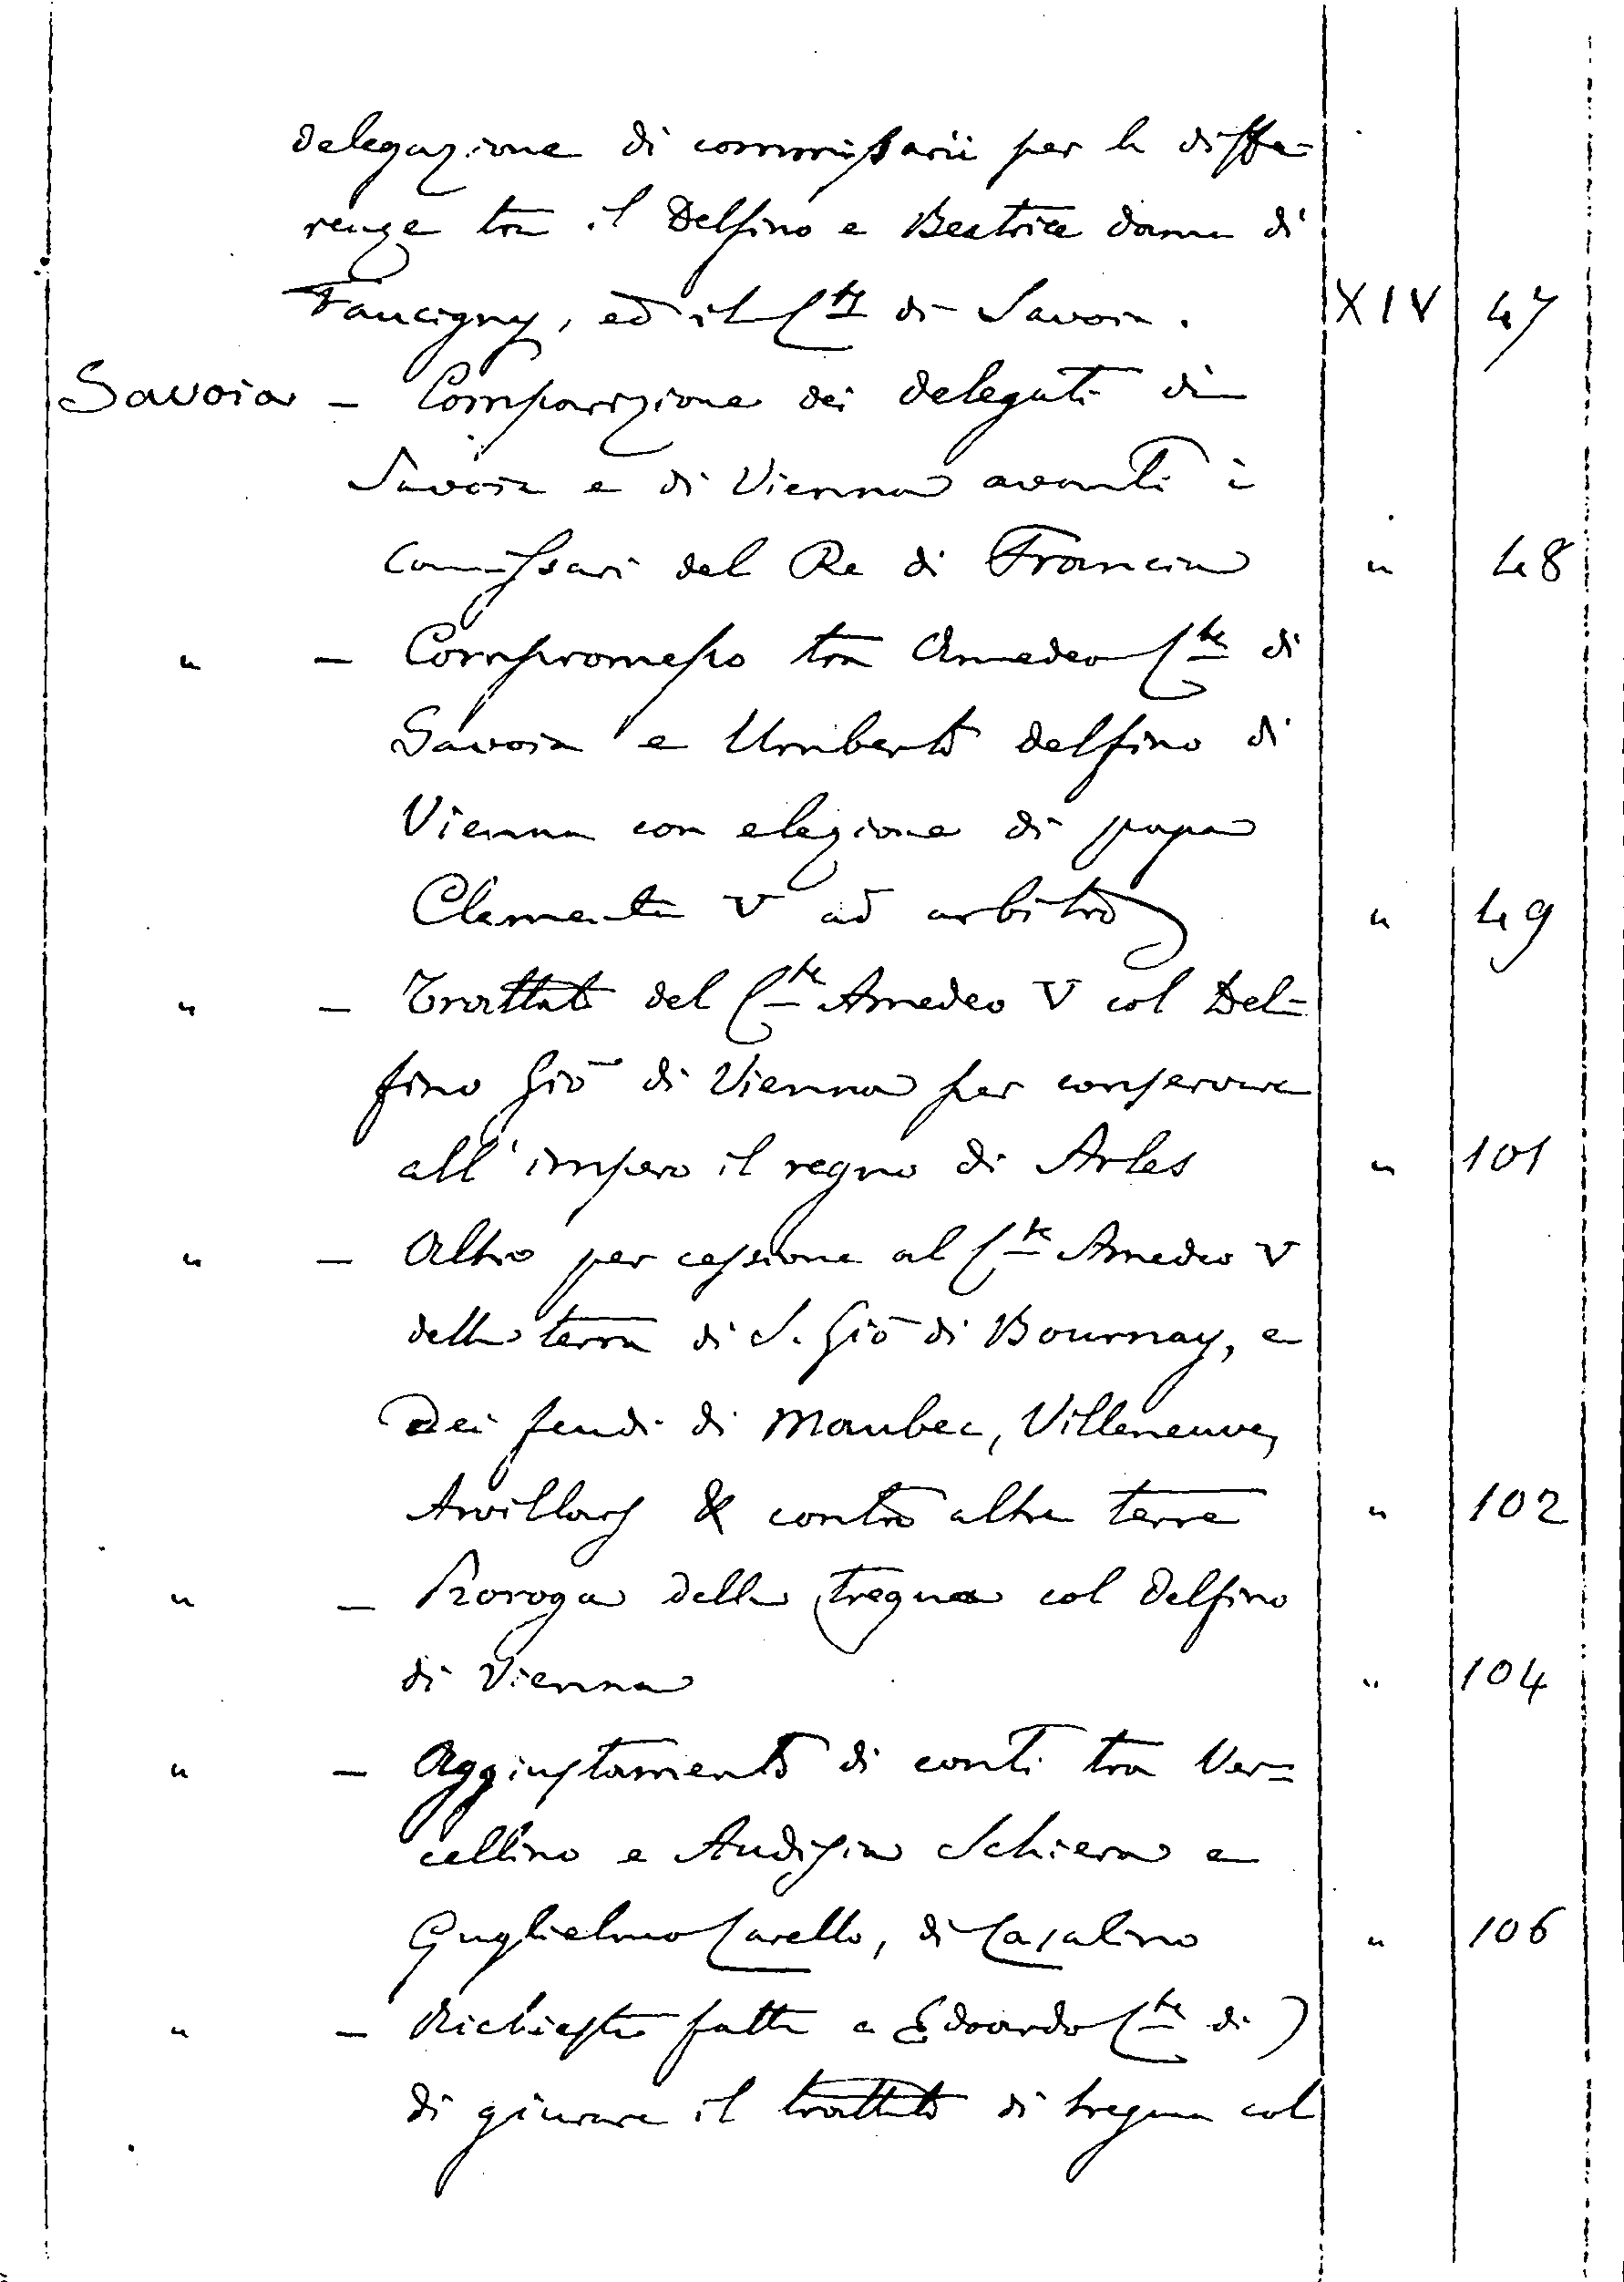 delegazione di commissarii per le diffe-
renze tra il Delfino e Beatrice dama di
Faucigny, ed il Cte di Savoia. XIV 47
Savoia - Comparizione dei delegati di
Savoia e di Vienna avanti i
Commissari del Re di Francia " 48
" - Compromesso tra Amedeo Cte di
Savoia e Umberto delfino di
Vienna con elezione di papa
Clemente V ad arbitro " 49
" - Trattato del Cte Amedeo V col Del=
fino Giō di Vienna per conservare
all'impero il regno di Arles " 101
" - Altro per cessione al Cte Amedeo V
della terra di S. Giō di Bournay, e
dei feudi di Maubec, Villeneuve,
Arvillars & contro altre terre " 102
" - Proroga della tregua col Delfino
di Vienna " 104
" - Aggiustamento di conti tra Ver=
cellino e Audisia Schiera e
Guglielmo Carello, di Casalino " 106
" - Richiesta fatta a Edoardo Cte di)
di giurare il trattato di tregua col